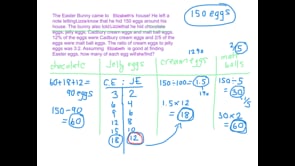 The Easter Bunny came to Elizabeth's house! He left a
note telling everyone that he hid 150 eggs around his
house. The bunny also told that he hid chocolate
eggs, jelly eggs, Cadbury cream eggs and malt ball eggs.
12% of the eggs were Cadbury Cream eggs and 2/5 of the
eggs were malt ball eggs. The ratio of cream eggs to jelly
eggs was 3:2. Assuming Elizabeth is good at finding
Easter eggs, how many of each egg were
150 eggs
chocolate
Jelly eggs
cream eggs
12%
malt balls
2/5
60+18+12=
90 eggs
150-90
= 60
CE : JE
3 2
6 4
9 6
12 8
15 10
18 12
150÷100 = 1.5
1%
1.5 x 12
= 18
150÷5
= 30
1/5
30 x 2
= 60